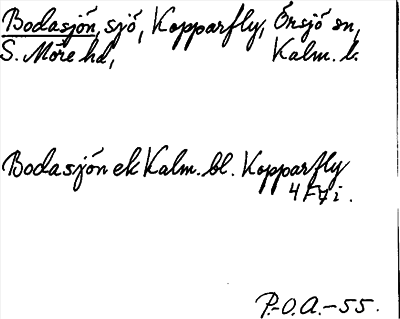 Bodasjön, sjö, Kopparfly, Örsjö sn,
S. Möre hd, Kalm. l.
Bodasjön ek Kalm. bl. Kopparfly
4 F7 i.
P.-O.A.-55.